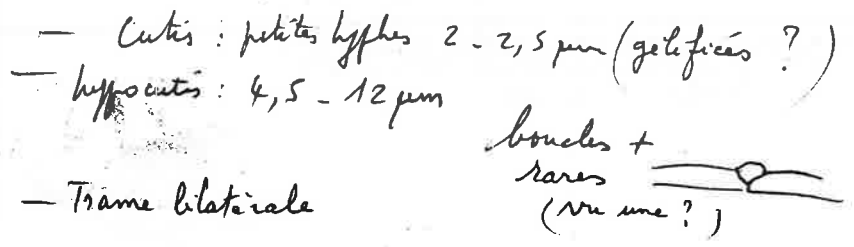 — Cutis : petites hyphes 2 - 2,5 µm (gélifiées ?)
— hypocutis : 4,5 - 12 µm
boucles +
rares
(vu une ?)
— Trame bilatérale